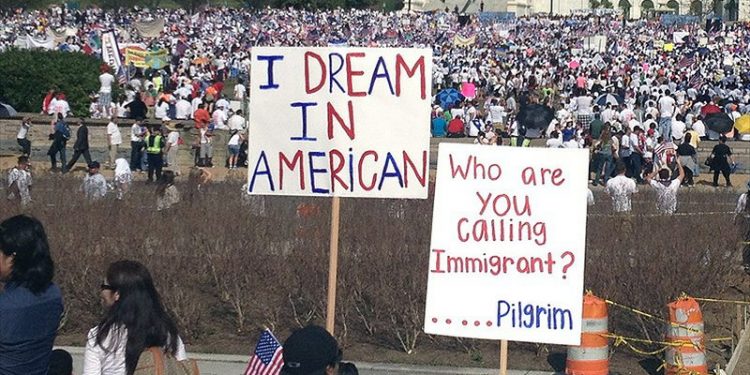 I DREAM
IN
AMERICAN
Who are
YOU
Calling
Immigrant?
.....Pilgrim